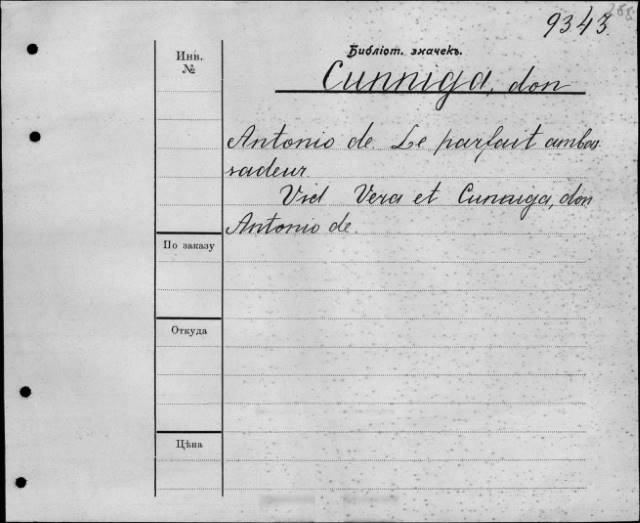 9343
Инв.
№
Библіот. значекъ.
Cunniga, don
Antonio de. Le parfait ambas
sadeur.
Vid Vera et Cunniga, don
Antonio de.
По заказу
Откуда
Цѣна